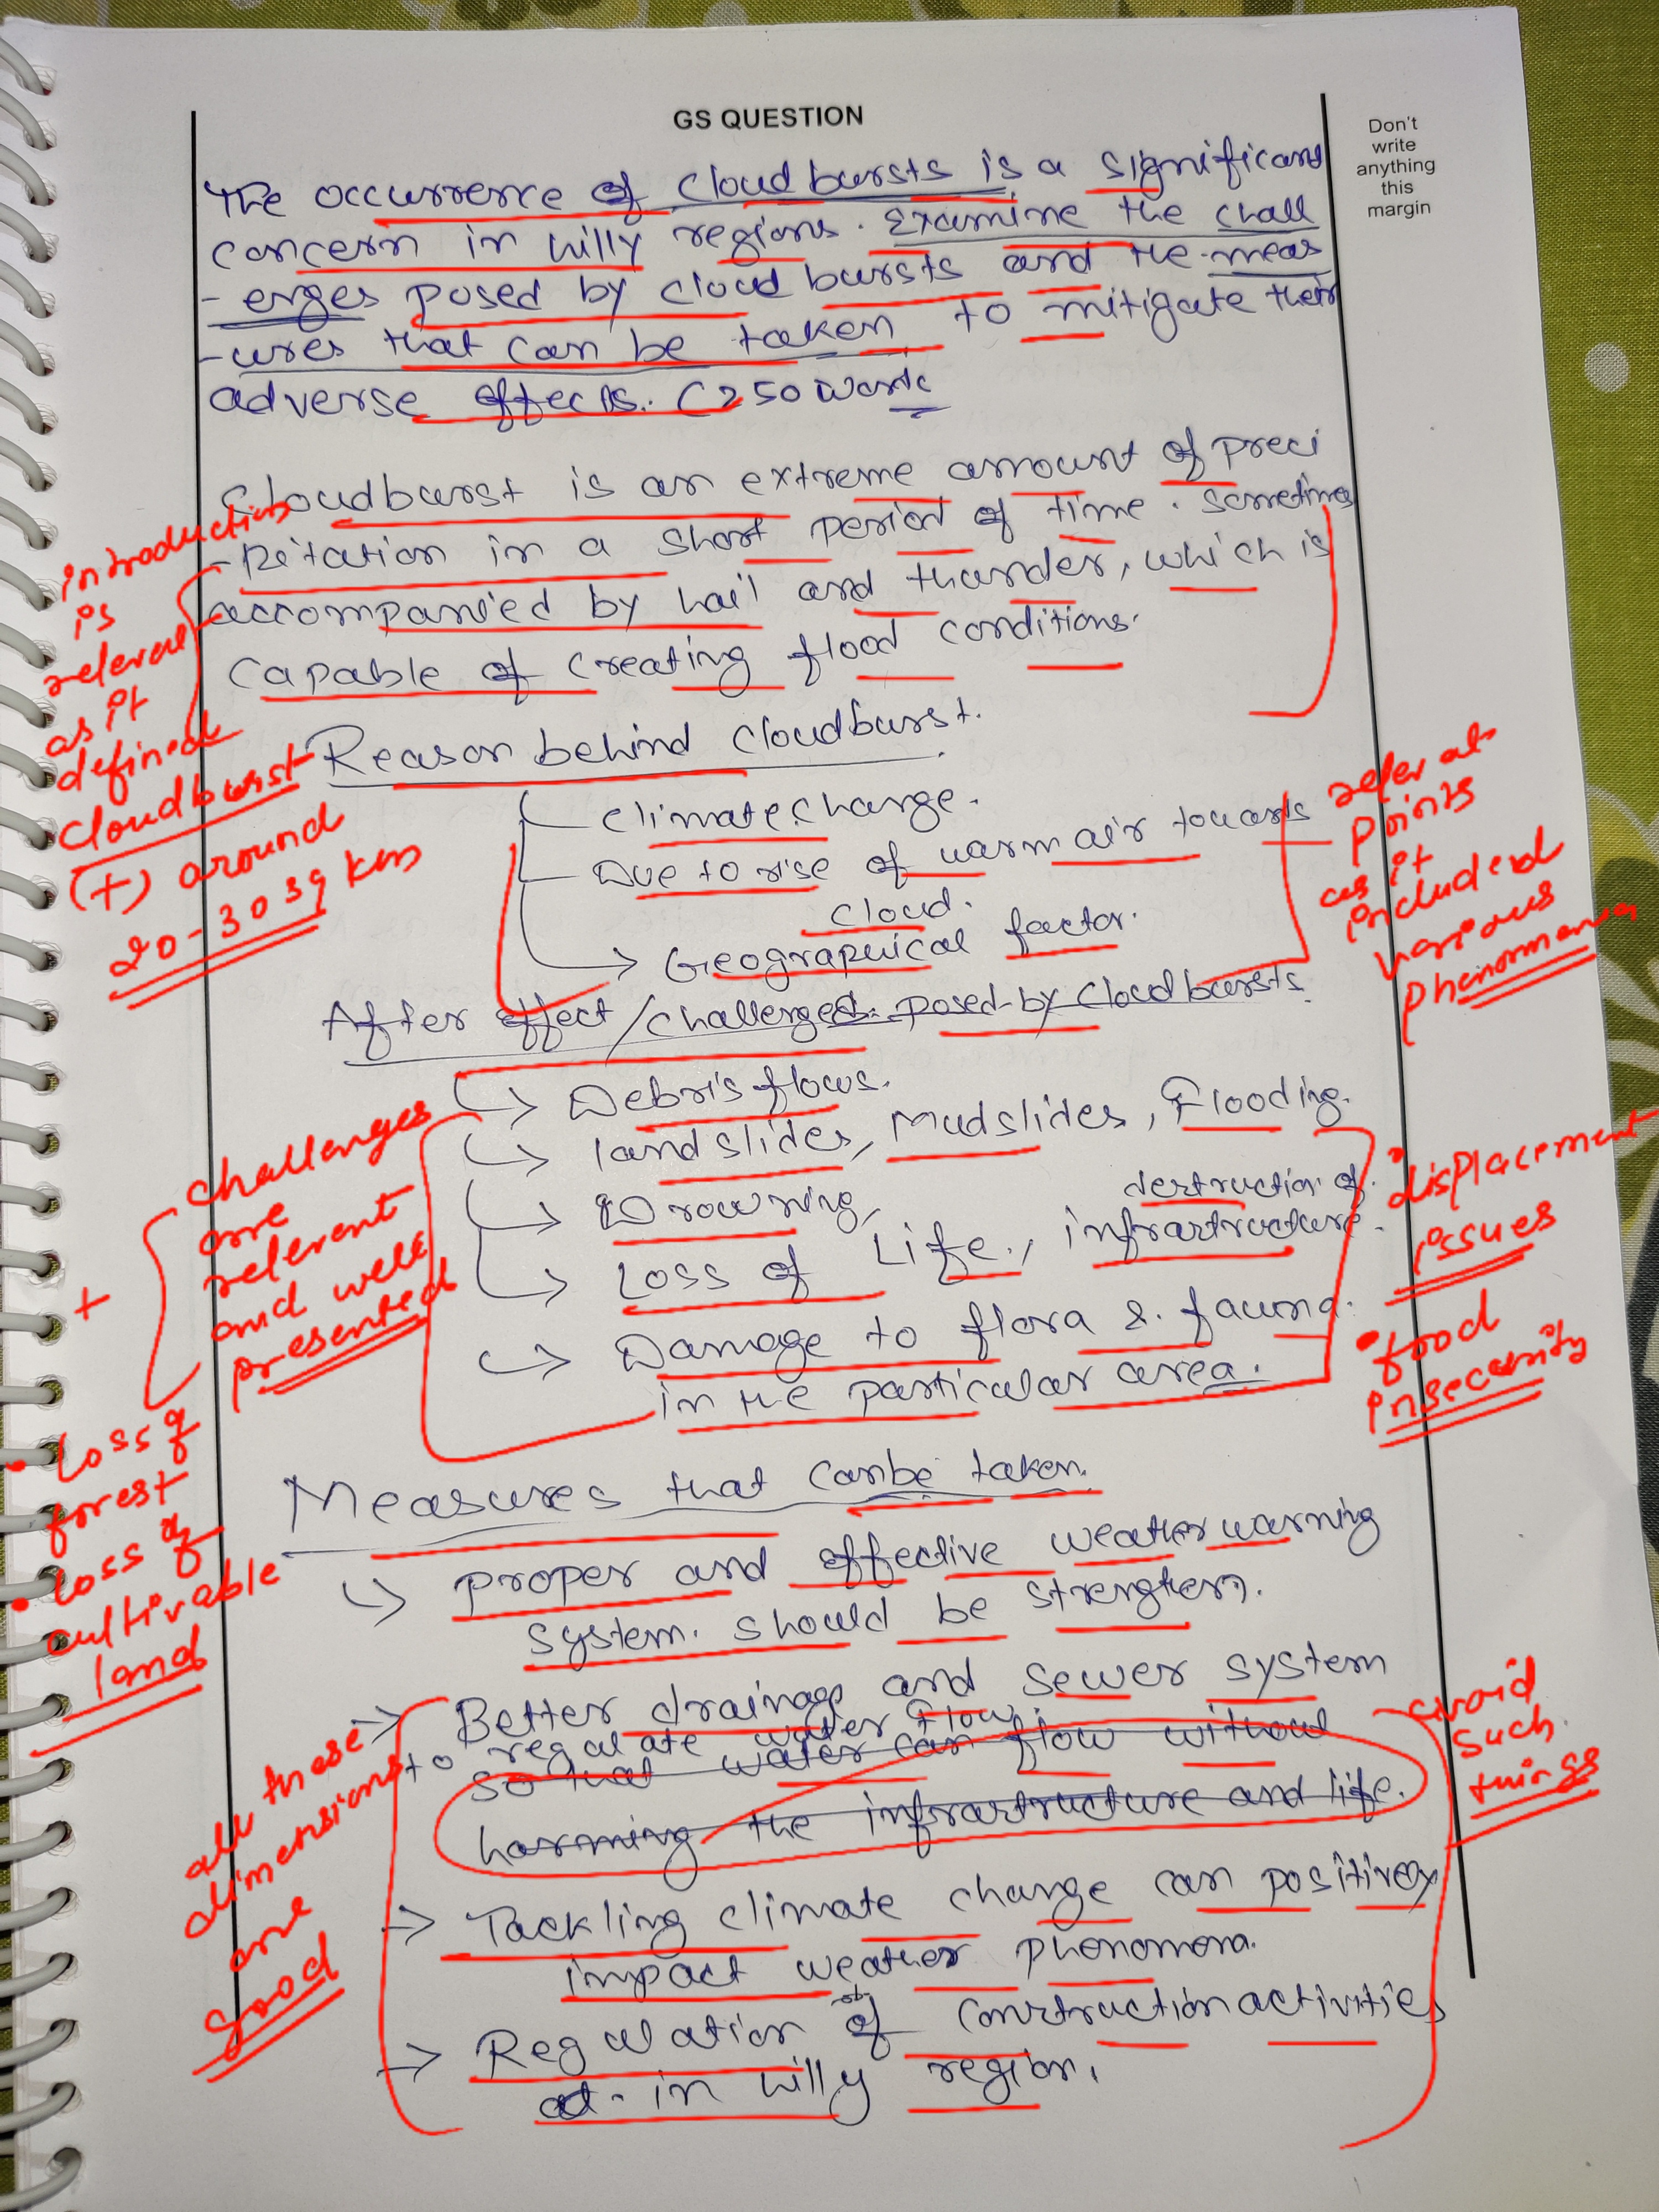 GS QUESTION
Don't
write
anything
this
margin
The occurrence of cloudbursts is a significant
concern in hilly regions. Examine the chall
-enges posed by cloudbursts and the meas
-ures that can be taken to mitigate their
adverse effects. (250 words
Cloudburst is an extreme amount of preci
-pitation in a short period of time. Sometimes
accompanied by hail and thunder, which is
capable of creating flood conditions.
introduction
is
relevant
as it
defined
cloudburst
(+) around
20-30 sq km
Reason behind cloudburst.
climate change.
Due to rise of warm air towards
cloud.
Geographical factor.
relevat
points
as it
included
various
phenomena
After effect/challenges posed by cloudbursts.
Debris flows.
landslides, Mudslides, Flooding.
Drowning,
Loss of Life., destruction of
infrastructure.
Damage to flora & fauna.
in the particular area.
+
challenges
are
relevent
and well
presented
• Loss of
forest
• Loss of
cultivable
land
• displacement
issues
• food
insecurity
Measures that can be taken.
proper and effective weather warning
system. should be strengthern.
Better drainage and sewer system
to regulate water flow.
so that water can flow without
harming the infrastructure and life.
avoid
such
things
Tackling climate change can positively
impact weather phonomona.
Regulation of construction activities
in hilly region.
all these
dimensions
are
good